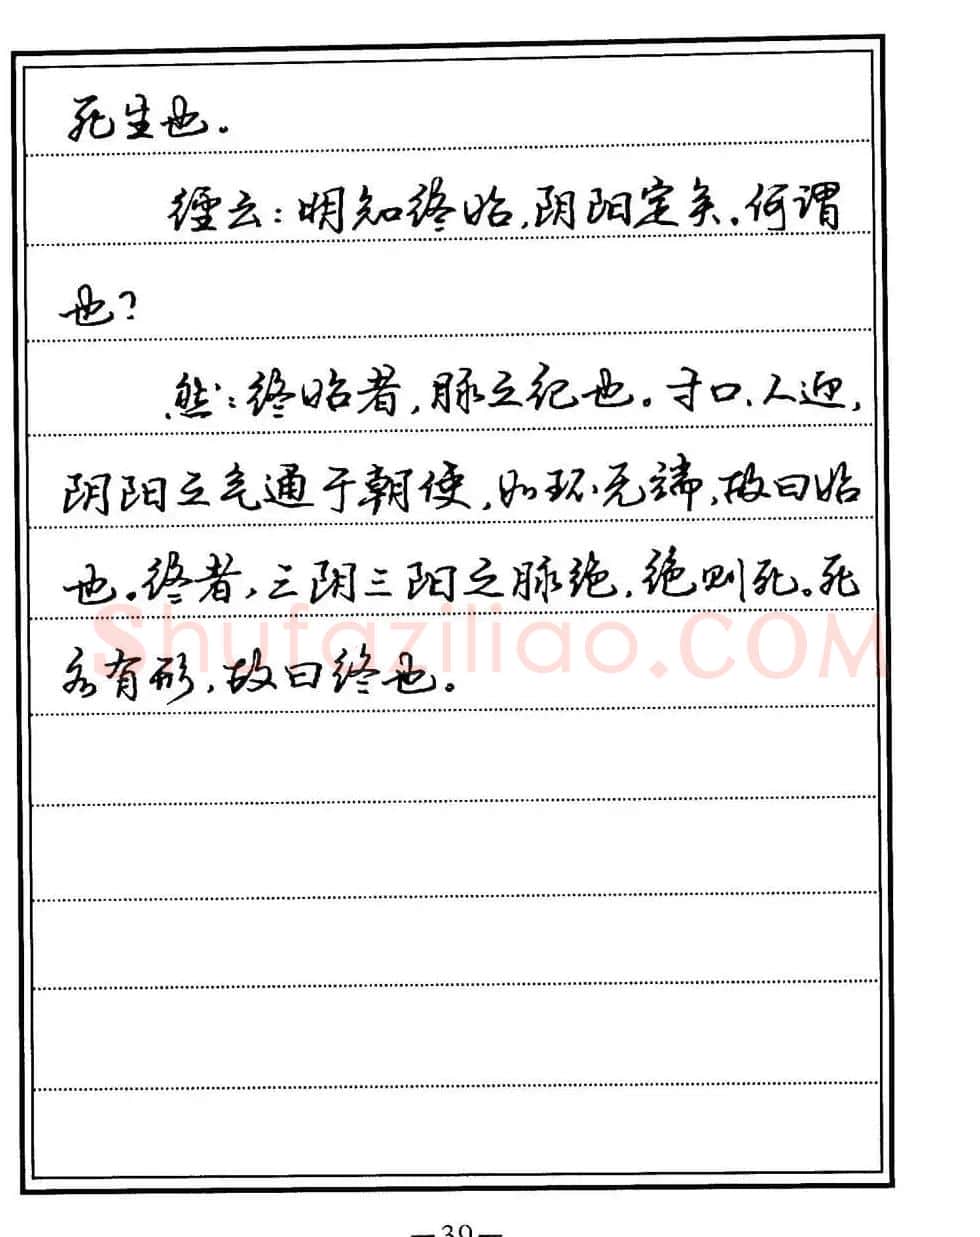 死生也。
经云：明知终始，阴阳定矣。何谓
也？
然：终始者，脉之纪也。寸口、人迎，
阴阳之气通于朝使，如环无端，故曰始
也。终者，三阴三阳之脉绝，绝则死。死
各有形，故曰终也。
Shufaziliao.COM
—39—